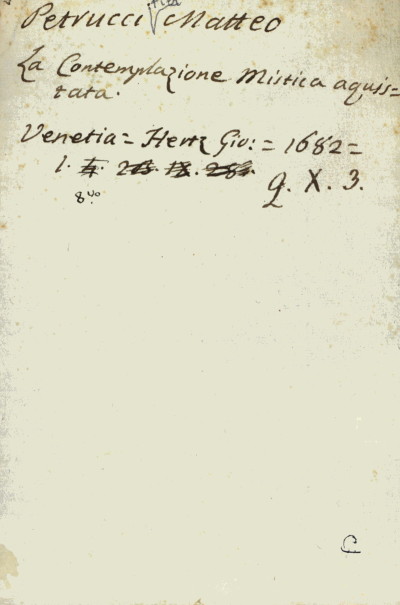 Petrucci Matteo
La Contemplazione Mistica aquis=
tata.
Venetia = Hertz Gio: = 1682 =
1.
8.vo
Q. X. 3.
C